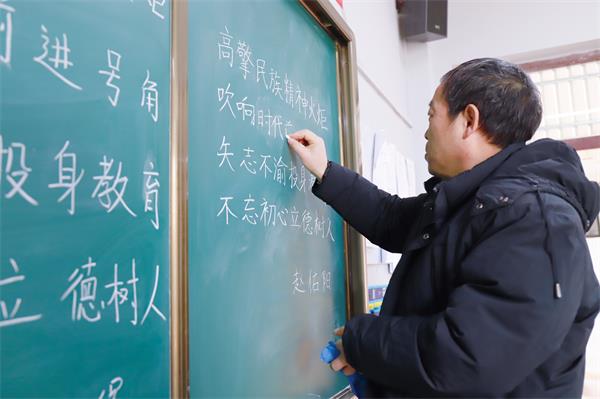 炬
前进号角
投身教育
立德树人
高擎民族精神火炬
吹响时代
矢志不渝投身
不忘初心立德树人